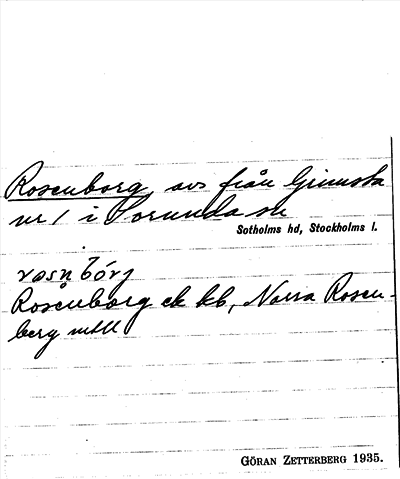 Rosenborg, avs från Grimsta
nr 1 i Sorunda sn
Sotholms hd, Stockholms l.
rosnbórj
Rosenborg ek kb, Norra Rosen-
berg mtll
GÖRAN ZETTERBERG 1935.